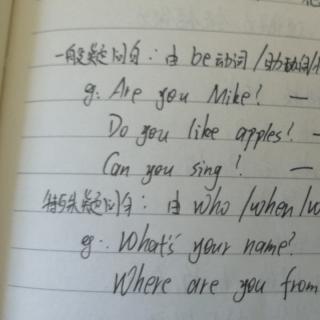 一般疑问句：由 be动词/助动词/
g: Are you Mike? —
Do you like apples? —
Can you sing? —
特殊疑问句：由 who/when/w
g: What's your name?
Where are you from